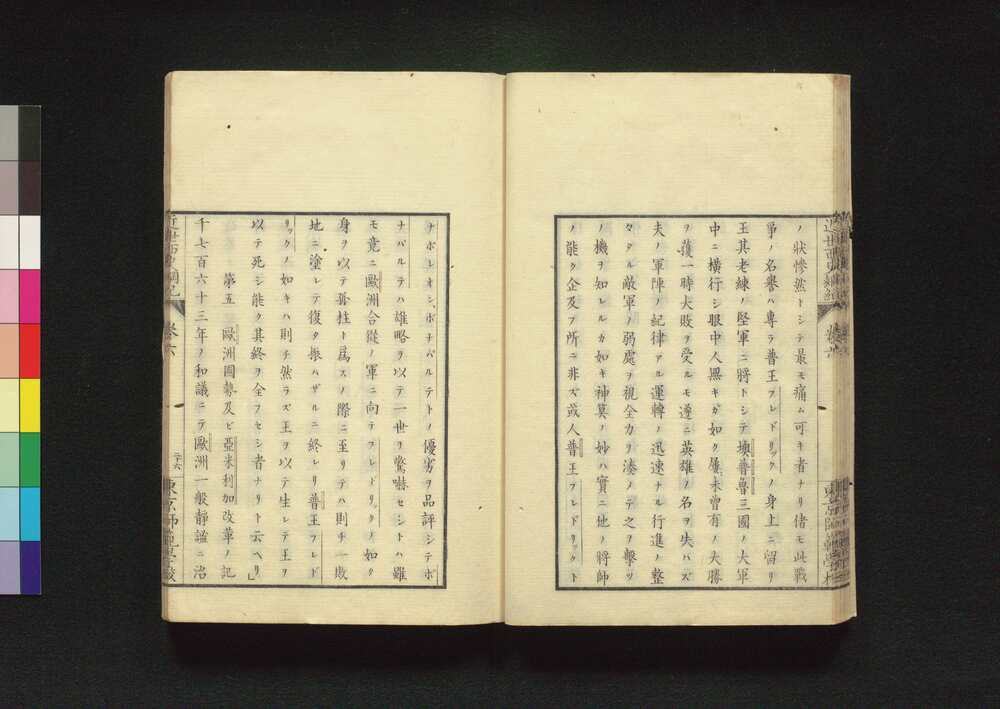 ノ狀慘然トシテ最モ痛ム可キ者ナリ偖モ此戰
爭ノ名譽ハ專ラ普王フレドリックノ身上ニ留リ
王其老練ノ堅軍ニ將トシテ墺魯三國ノ大軍
中ニ橫行シ眼中人無キガ如ク屢未曾有ノ大勝
ヲ獲一時大敗ヲ受ルモ遂ニ英雄ノ名ヲ失ハズ
夫ノ軍陣ノ紀律アル運轉ノ迅速ナル行進ノ整
タル敵軍ノ弱處ヲ視全力ヲ湊メテ之ヲ擊ツ
ノ機ヲ知レルガ如キ神算ノ妙ハ實ニ他ノ將師
ノ能ク企及フ所ニ非ズ或人普王フレドリックト
ナポレオン、ボナパルテトノ優劣ヲ品評シテボ
ナパルテハ雄略ヲ以テ一世ヲ驚嚇セシトハ雖
モ竟ニ歐洲合從ノ軍ニ向テフレドリックノ如ク
身ヲ以テ孤柱ト爲スノ際ニ至リテハ則チ一敗
地ニ塗レテ復タ振ハザルニ終レリ普王フレド
リックノ如キハ則チ然ラズ王ヲ以テ生レテ王ヲ
以テ死シ能ク其終ヲ全フセシ者ナリト云ヘリ」
第五 歐洲國勢及ビ亞米利加改革ノ記
千七百六十三年ノ和議ニテ歐洲一般靜謐ニ治
卷六
二十六
東京師範學校